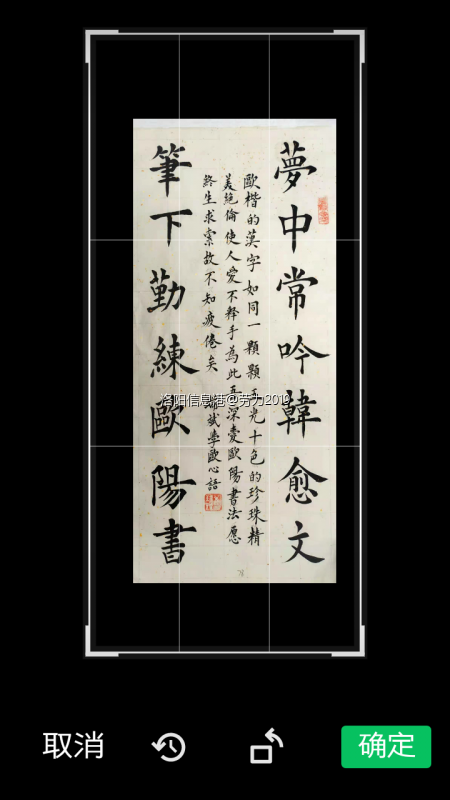 夢中常吟韓愈文
歐楷的漢字如同一顆顆五光十色的珍珠精
美絕倫使人愛不釋手為此五深愛歐陽書法愿
終生求索故不知疲倦矣
斌學歐心語
筆下勤練歐陽書
洛阳信息港@劳力2019
取消
确定